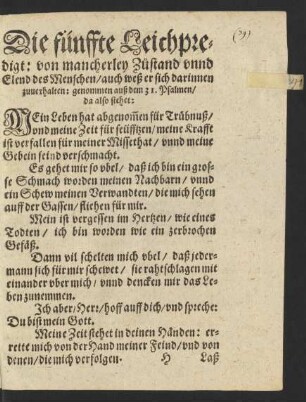 (29)
Die fünffte Leichpre-
digt: von mancherley Züstand vnnd
Elend des Menschen/ auch weß er sich darinnen
zuuerhalten: genommen auß dem 31. Psalmen/
da also stehet:
MEin Leben hat abgenom̄en für Trübnuß/
vnd meine Zeit für seüfftzen/ meine Krafft
ist verfallen für meiner Missethat/ vnnd meine
Gebein seind verschmacht.
Es gehet mir so vbel/ daß ich bin ein gros-
se Schmach worden meinen Nachbarn/ vnnd
ein Schew meinen Verwandten/ die mich sehen
auff der Gassen/ fliehen für mir.
Mein ist vergessen im Hertzen/ wie eines
Todten/ ich bin worden wie ein zerbrochen
Gefäß.
Dann vil schelten mich vbel/ daß jeder-
mann sich für mir schewet/ sie rahtschlagen mit
einander vber mich/ vnnd dencken mir das Le-
ben zunemmen.
Ich aber/ Herr/ hoff auff dich/ vnd spreche:
Du bist mein Gott.
Meine Zeit stehet in deinen Händen: er-
rette mich von der Hand meiner Feind/ vnd von
denen/ die mich verfolgen. H Laß